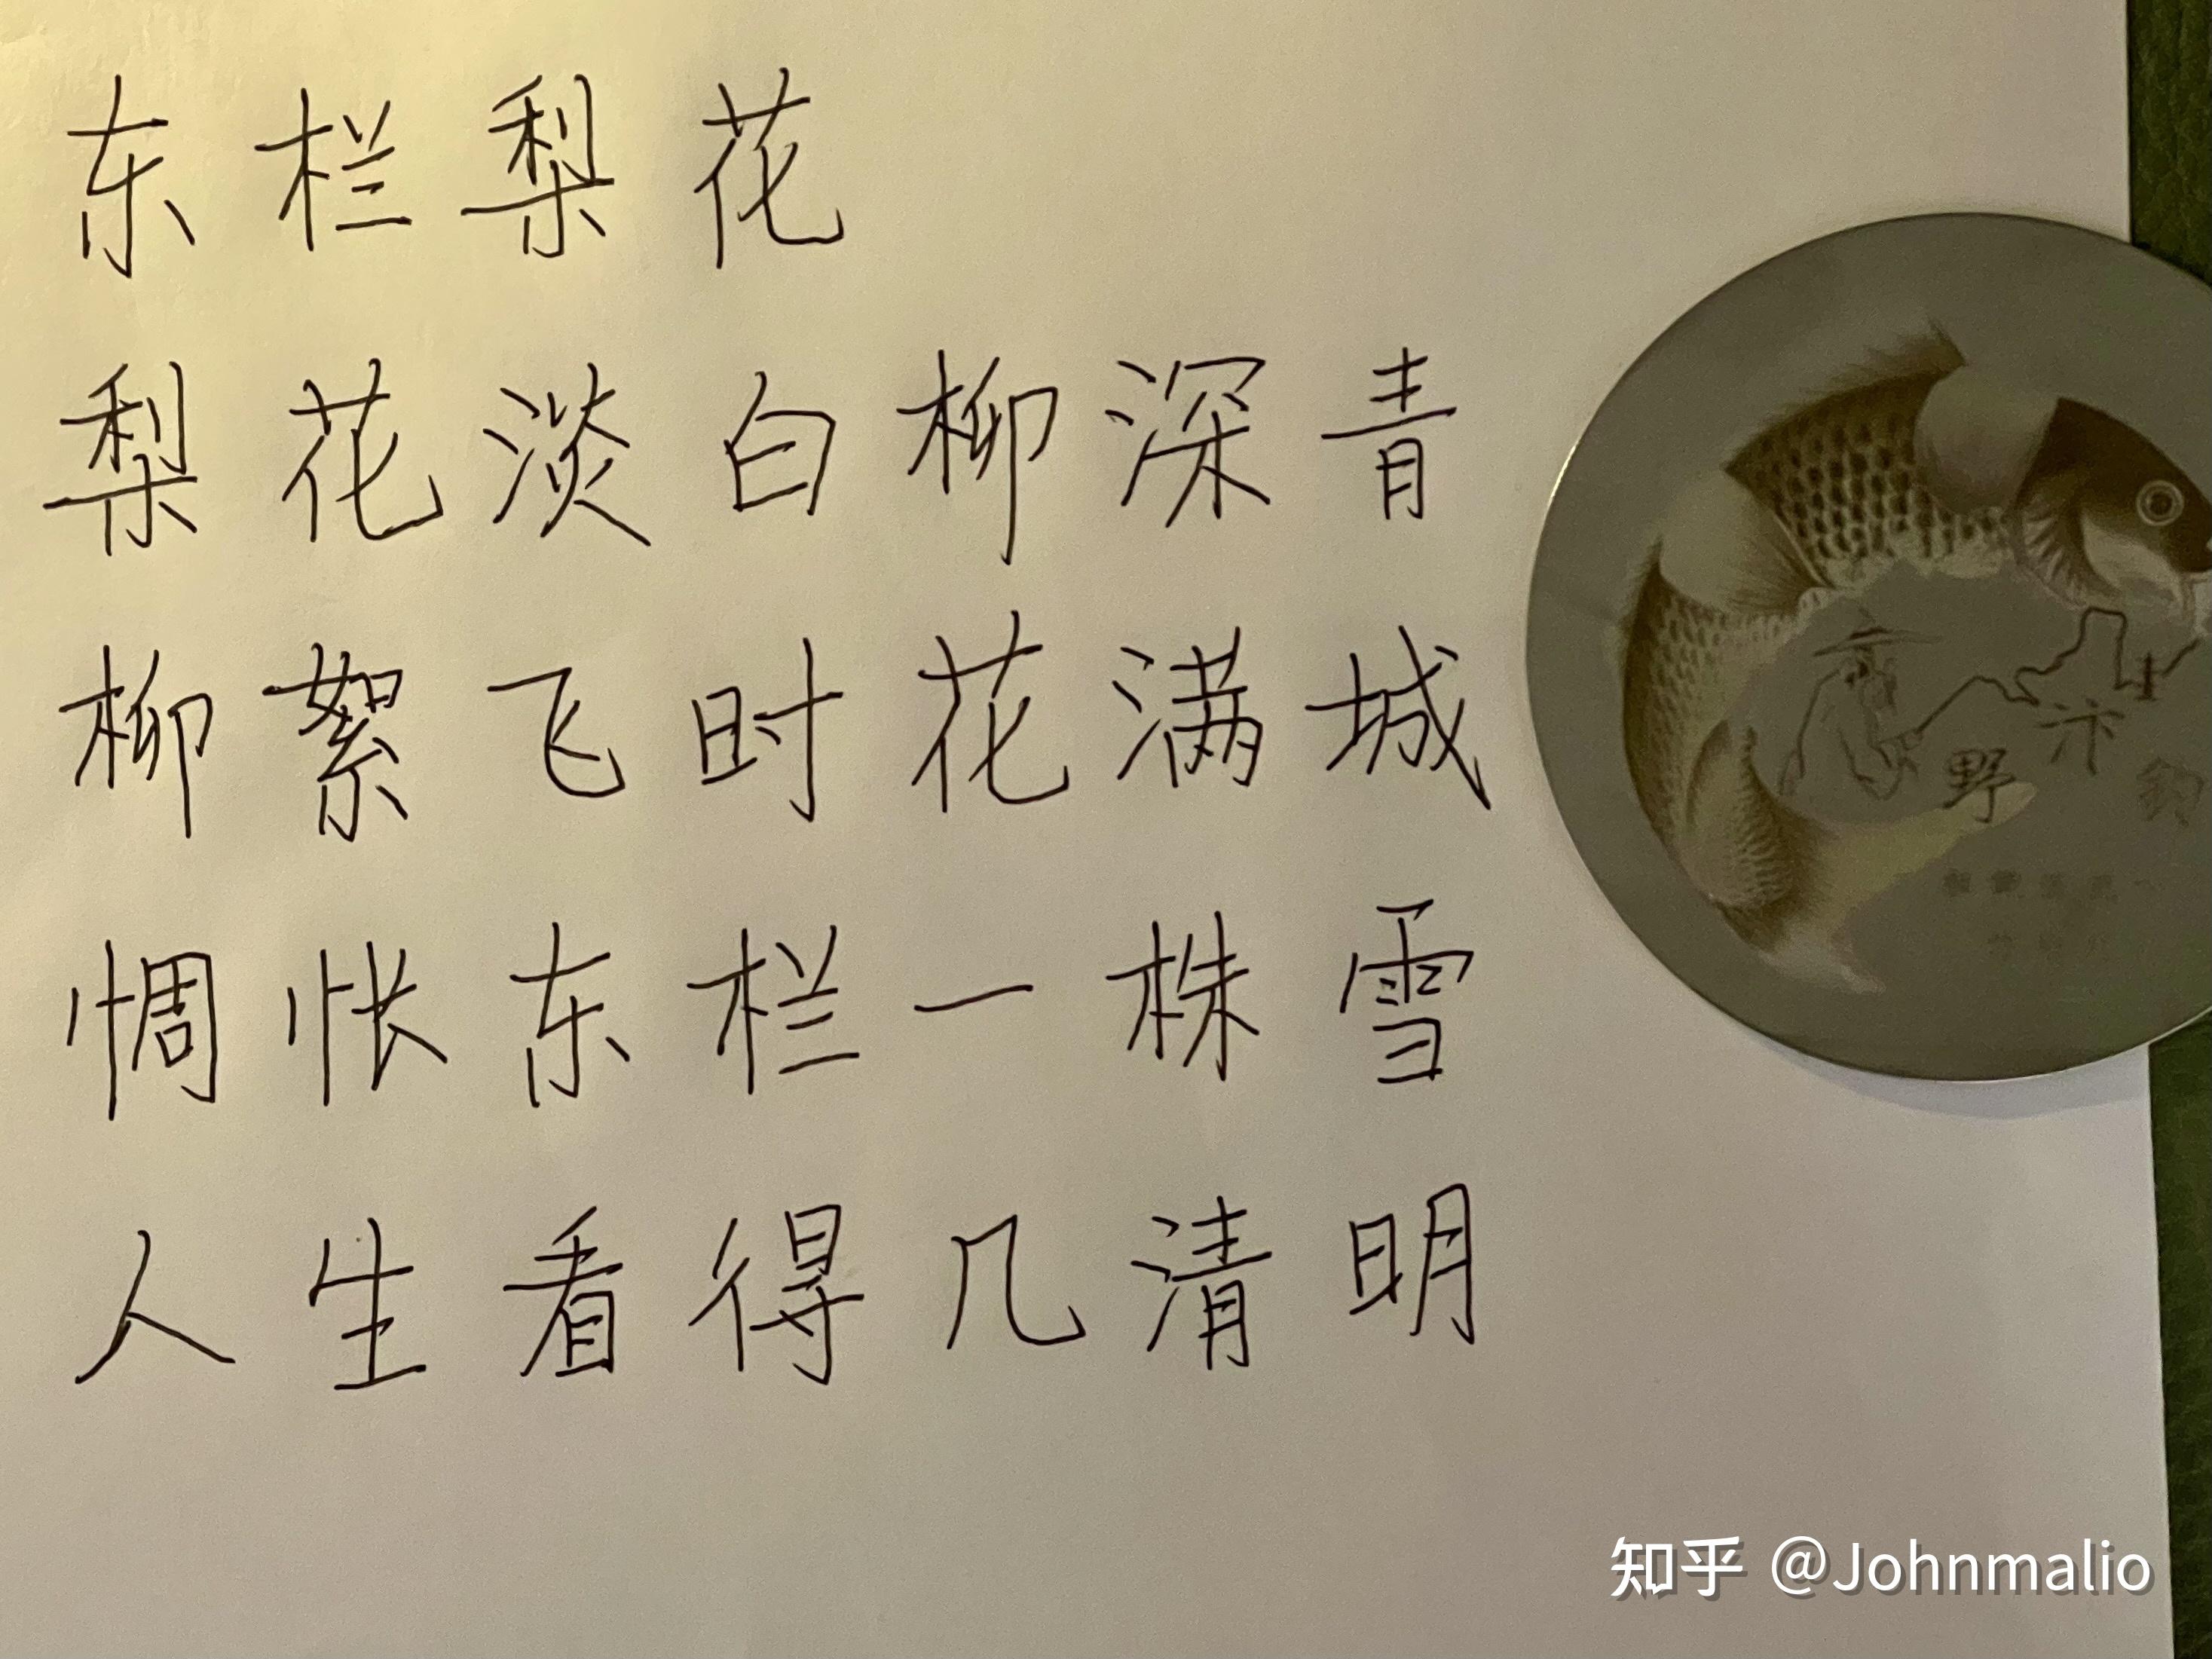 东栏梨花
梨花淡白柳深青
柳絮飞时花满城
惆怅东栏一株雪
人生看得几清明
野汴钓
知乎 @Johnmalio